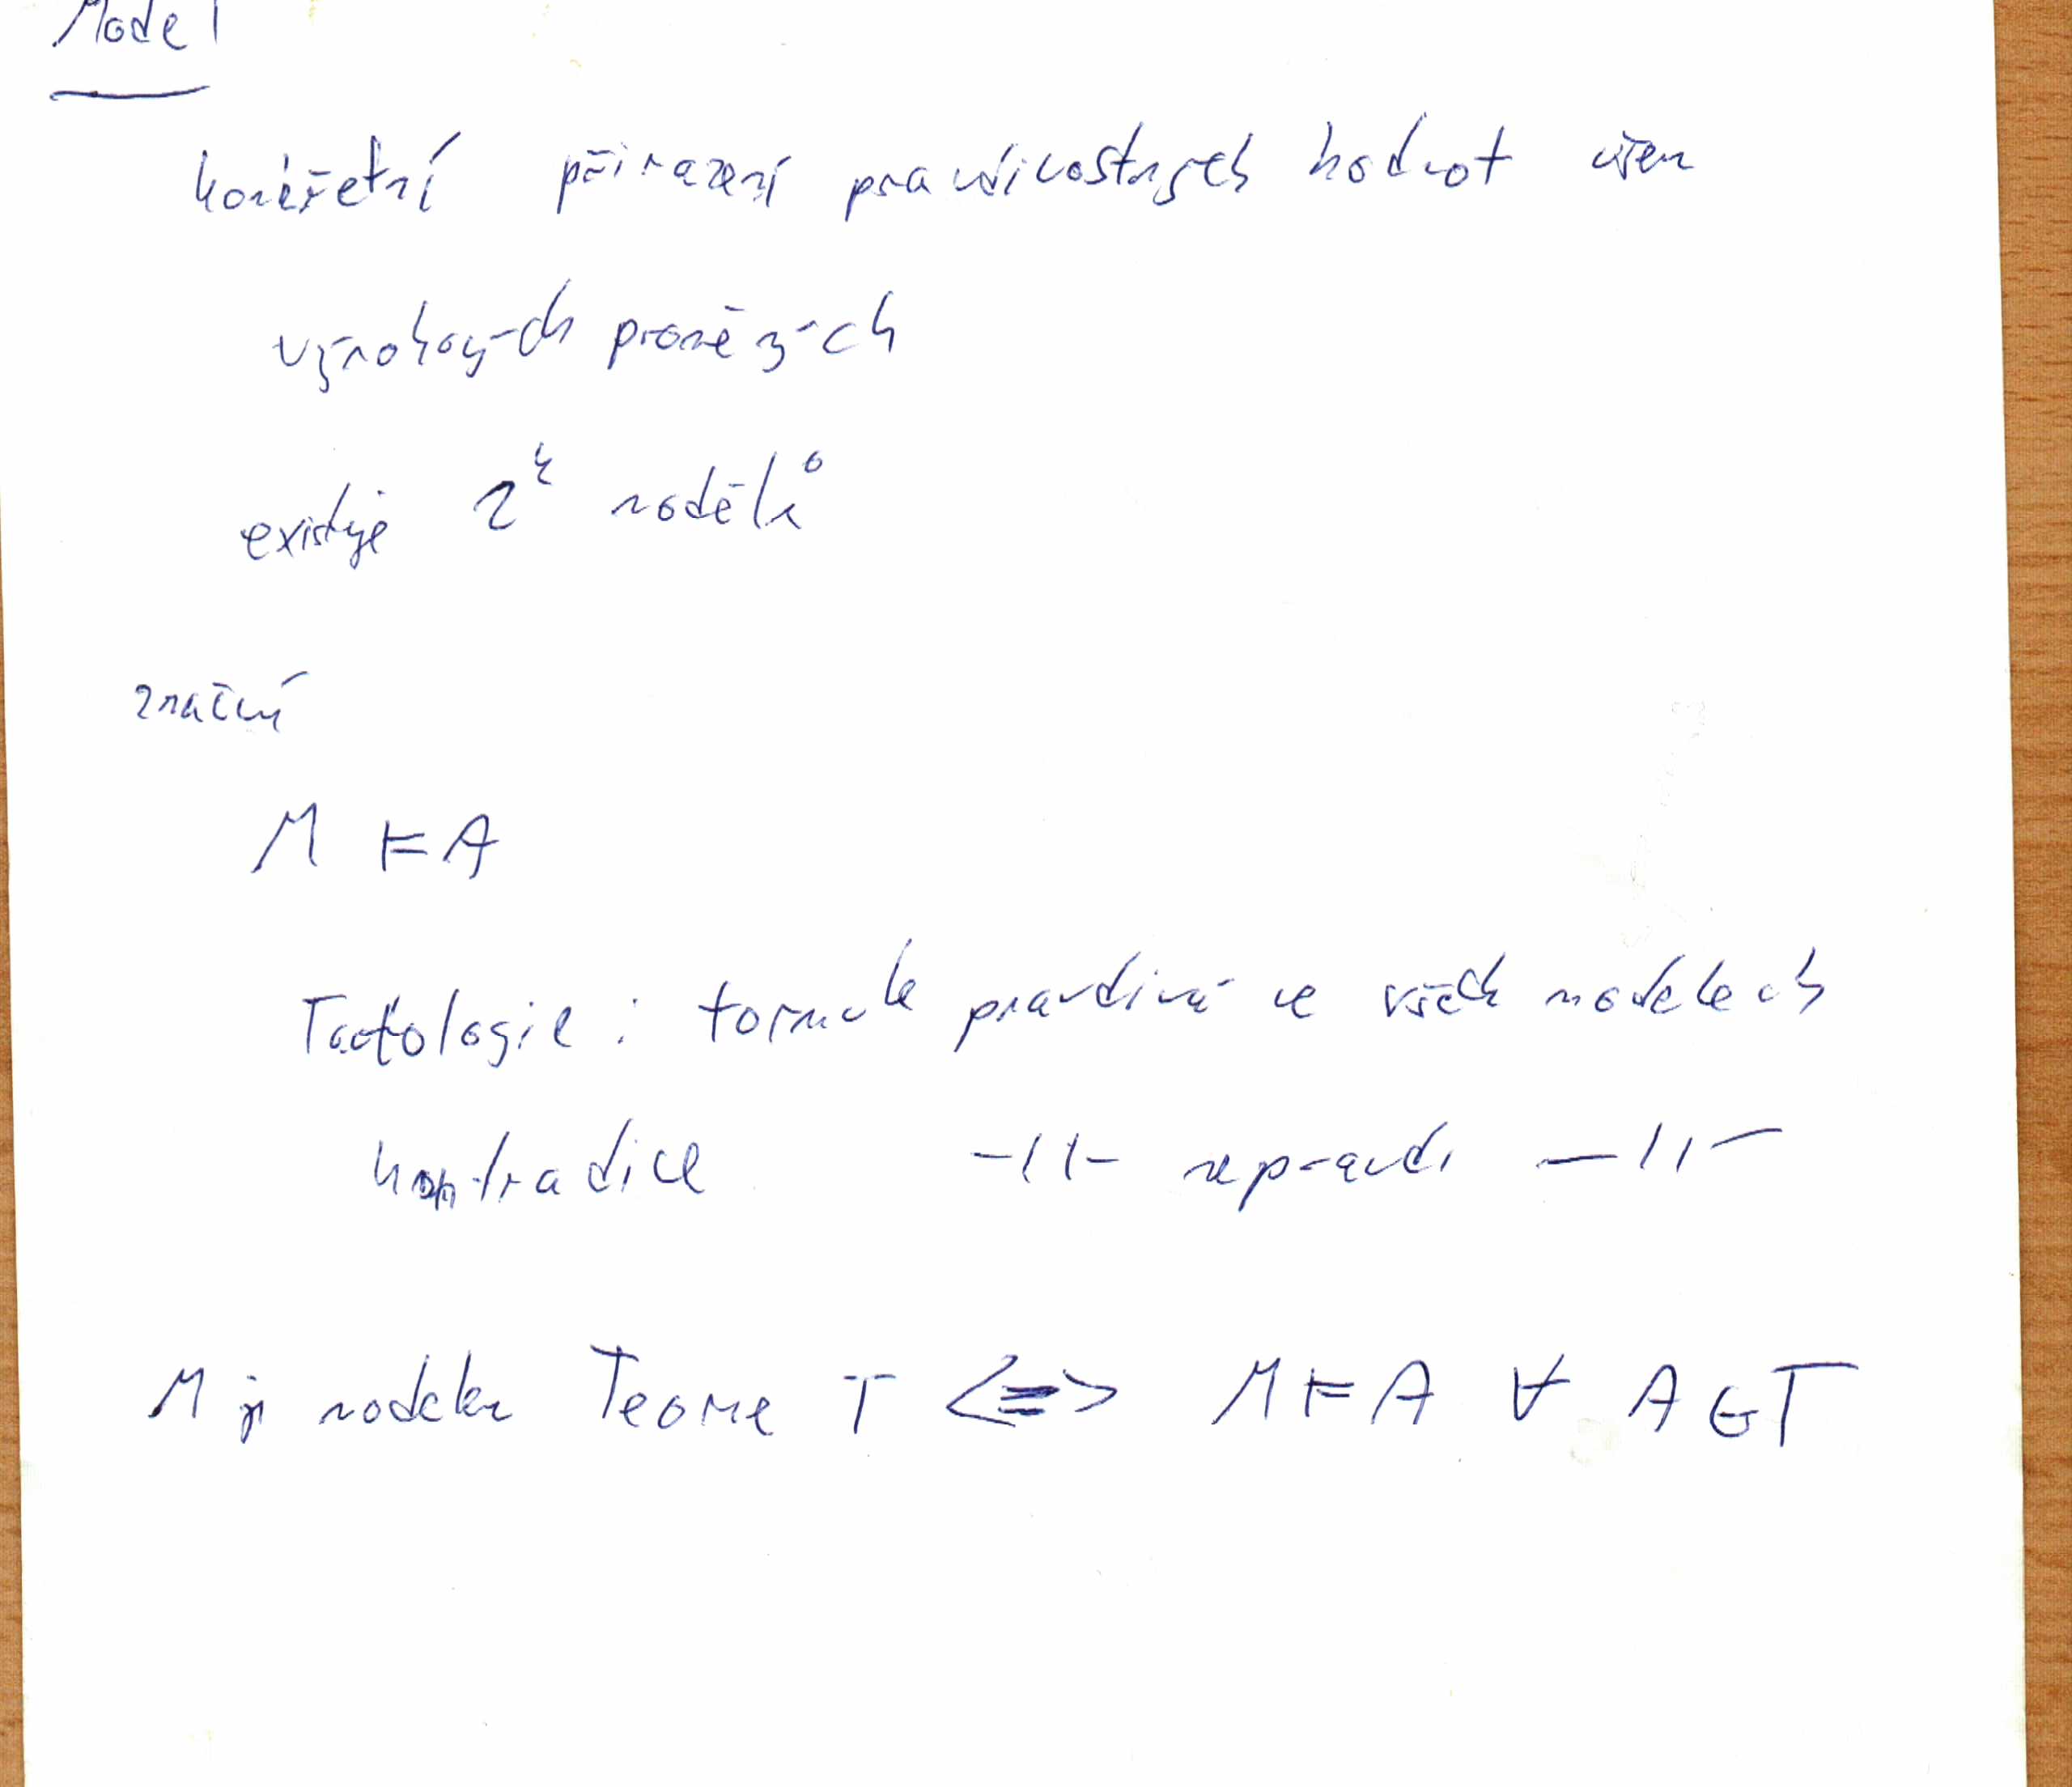 Model
konkřetní přirazení pravdivostných hodnot všem
výrokových proměných
existuje 2^k modělů
znační
M ⊨ A
Tautologie : formule pravdivá ve všech modelech
kontradice -||- nepravdi -||-
M je modelem Teorie T <=> M ⊨ A ∀ A ∈ T